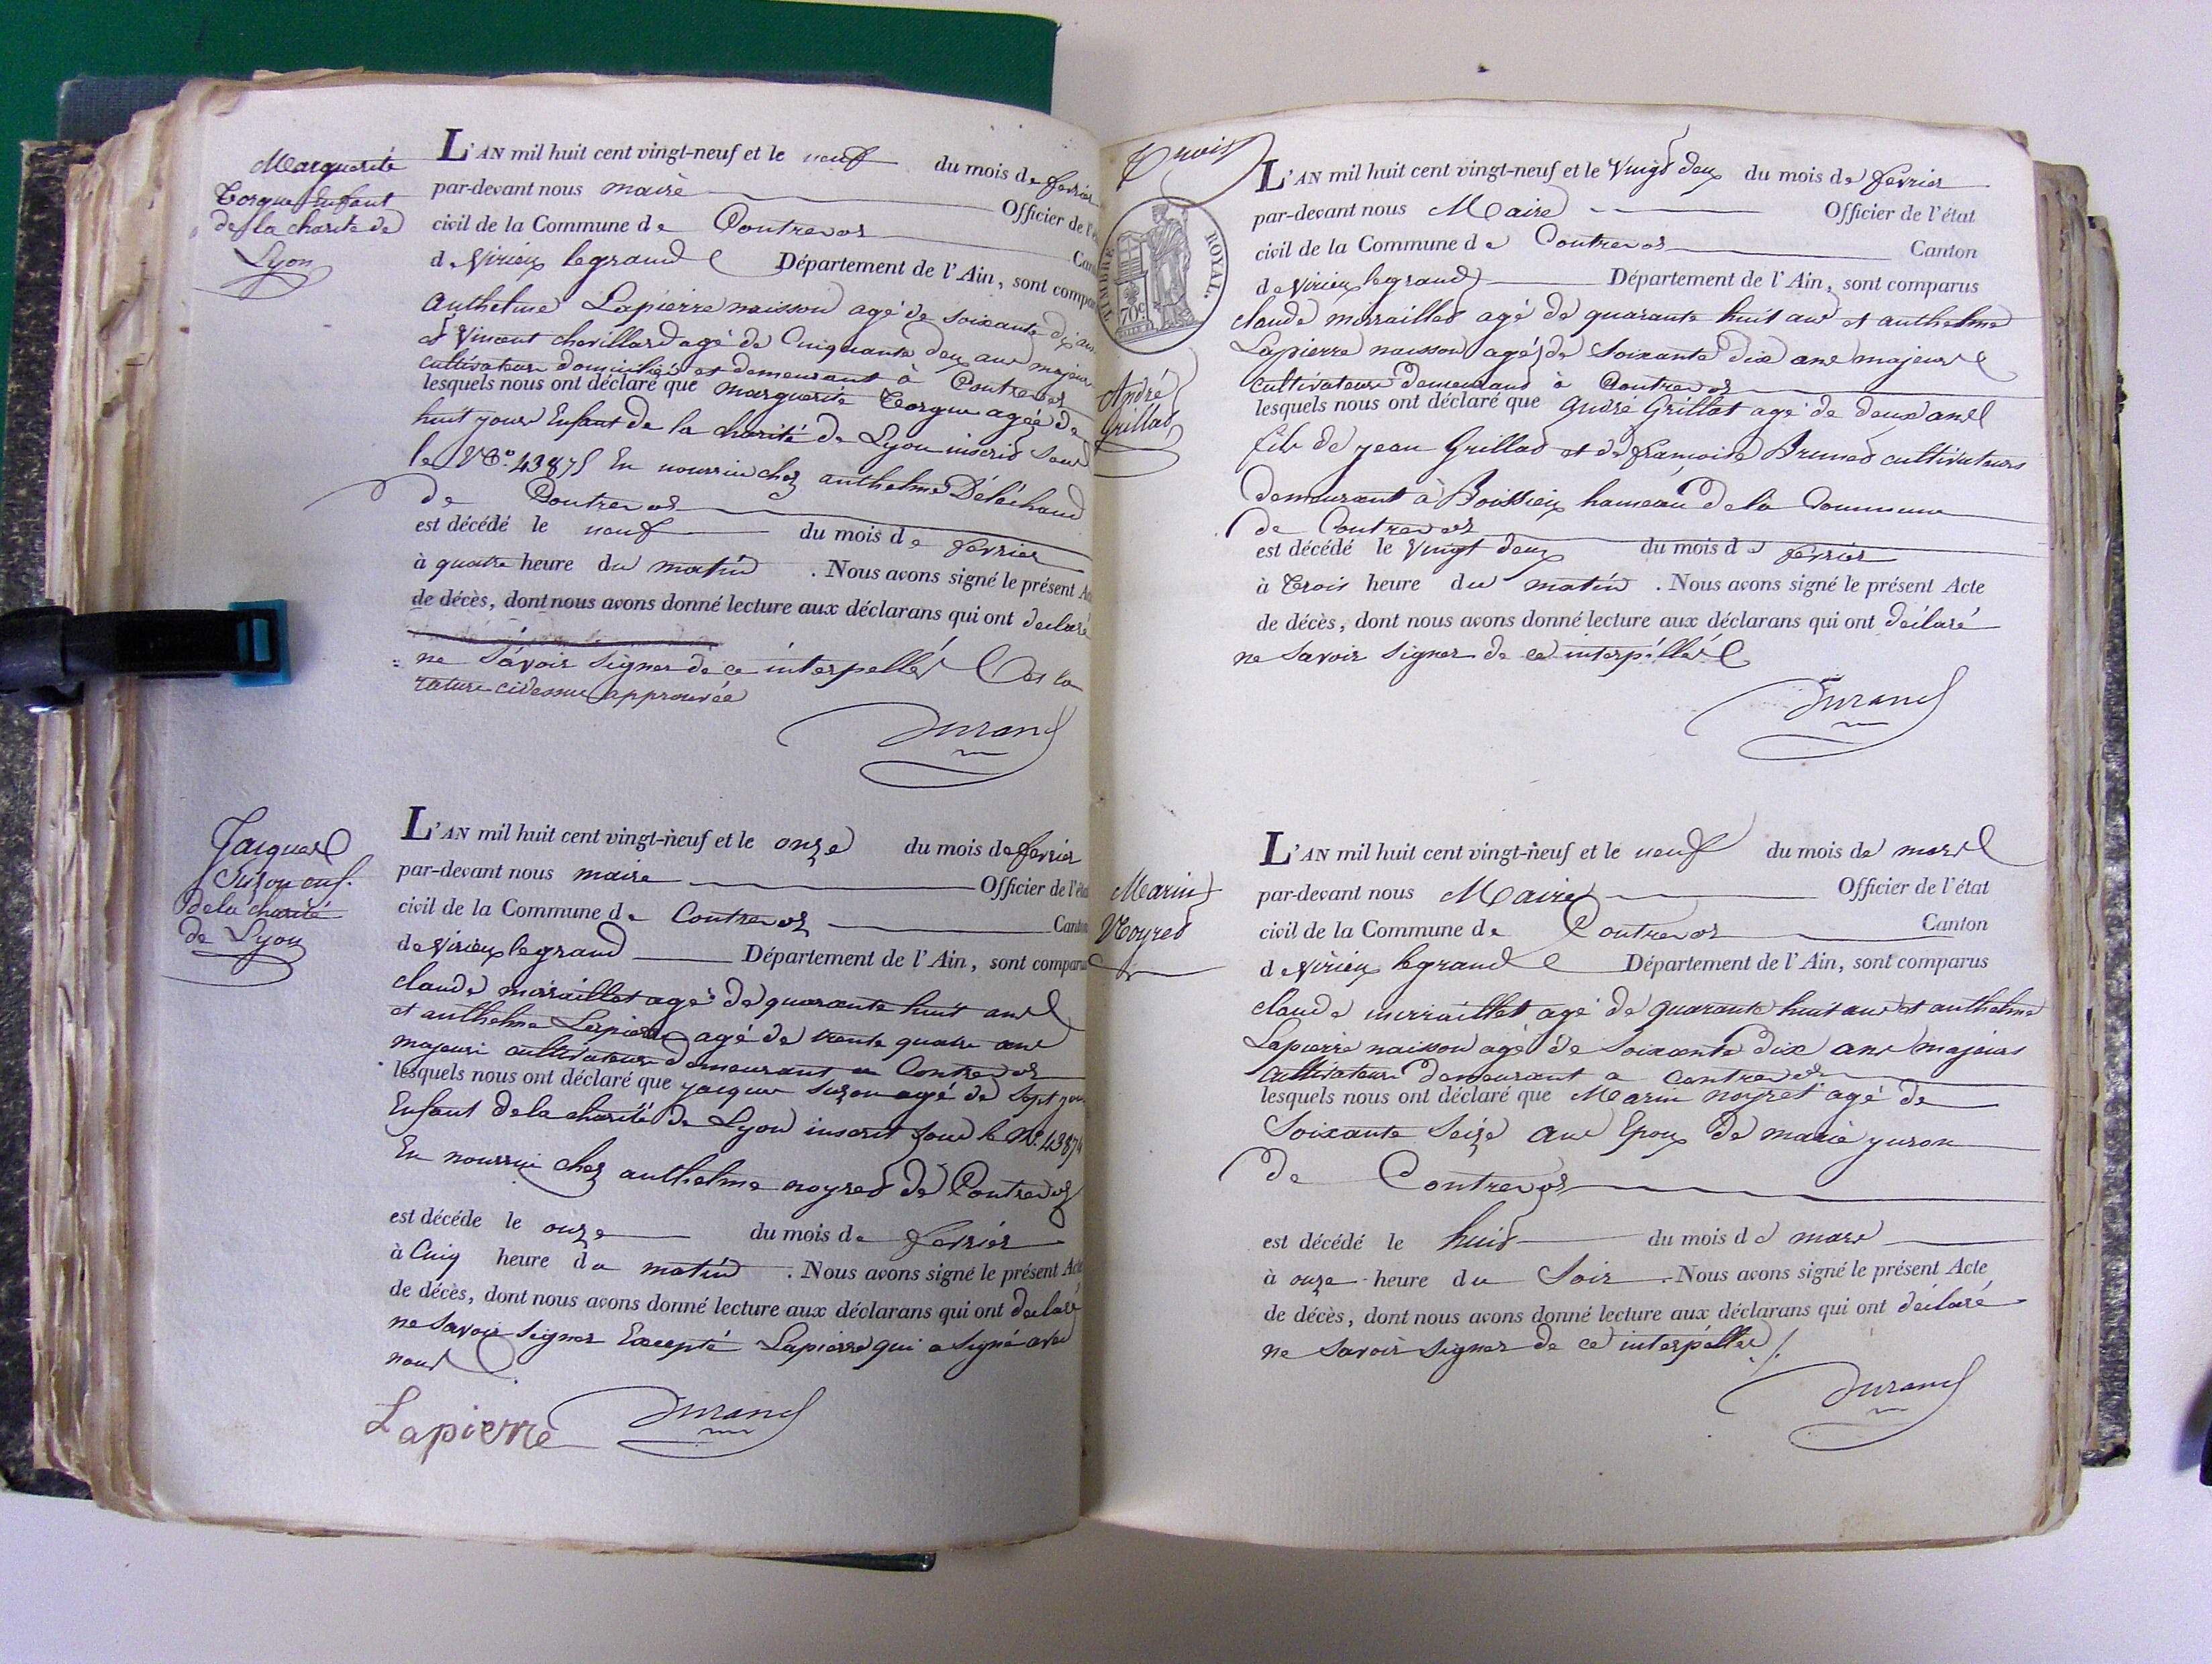 Marguerite
Torgue Enfant
de la charité de
Lyon
L'AN mil huit cent vingt-neuf et le neuf du mois de fevrier
par-devant nous maire Officier de l'é
civil de la Commune de Contrevoz Can
de Virieux legrand Département de l'Ain, sont compa
anthelme Lapierre naisson agé de soixante dix ans
et Vincent chevillard agé de Cinquante deux ans majeurs
cultivateurs domiciliés et demeurant à Contrevoz
lesquels nous ont déclaré que marguerite Torgue agée de
huit jours Enfant de la charité de Lyon inscrit sous
le No. 43875 En nourrice chez anthelme Déléchaud
de Contrevoz
est décédé le neuf du mois de fevrier
à quatre heure du matin . Nous avons signé le présent Ac
de décès, dont nous avons donné lecture aux déclarans qui ont declaré
ne savoir signer de ce interpellés Et la
rature cidessus approuvée
Durand
Jacques
Suzon enf.
de la charité
de Lyon
L'AN mil huit cent vingt-neuf et le onze du mois de fevrier
par-devant nous maire Officier de l'état
civil de la Commune de Contrevoz Canton
de Virieux legrand Département de l'Ain, sont comparus
claude mirraillet agé de quarante huit ans
et anthelme Lapierre agé de trente quatre ans
majeurs cultivateurs demeurant a Contrevoz
lesquels nous ont déclaré que jacque Suzon agé de Sept jour
Enfant de la charité de Lyon inscrit sous le No. 43874
En nourrice chez anthelme noyret de Contrevoz
est décéde le onze du mois de fevrier
à Cinq heure du matin . Nous avons signé le présent Acte
de décès, dont nous avons donné lecture aux déclarans qui ont declaré
ne savoir signer Excepté Lapierre qui a signé avec
nous
Lapierre Durand
Trois
TIMBRE ROYAL.
70c
André
Grillat
L'AN mil huit cent vingt-neuf et le Vingt deux du mois de fevrier
par-devant nous Maire Officier de l'état
civil de la Commune de Contrevoz Canton
de Virieux legrand Département de l'Ain, sont comparus
claude mirraillet agé de quarante huit ans et anthelme
Lapierre naisson agé de soixante dix ans majeurs
cultivateurs demeurant à Contrevoz
lesquels nous ont déclaré que André Grillat agé de deux ans
fils de jean Grillat et de françoise Brunet cultivateurs
demeurant à Boissieux hameau de la Commune
de Contrevoz
est décédé le Vingt deux du mois de fevrier
à trois heure du matin . Nous avons signé le présent Acte
de décès, dont nous avons donné lecture aux déclarans qui ont déclaré
ne savoir signer de ce interpéllés
Durand
Marin
Noyret
L'AN mil huit cent vingt-neuf et le neuf du mois de mars
par-devant nous Maire Officier de l'état
civil de la Commune de Contrevoz Canton
de Virieux legrand Département de l'Ain, sont comparus
claude mirraillet agé de quarante huit ans et anthelme
Lapierre naisson agé de soixante dix ans majeurs
cultivateurs demeurant a Contrevoz
lesquels nous ont déclaré que Marin noyret agé de
Soixante Seize ans Epoux de marie juron
de Contrevoz
est décédé le huit du mois de mars
à onze heure du Soir . Nous avons signé le présent Acte
de décès, dont nous avons donné lecture aux déclarans qui ont déclaré
ne savoir signer de ce interpéllés
Durand